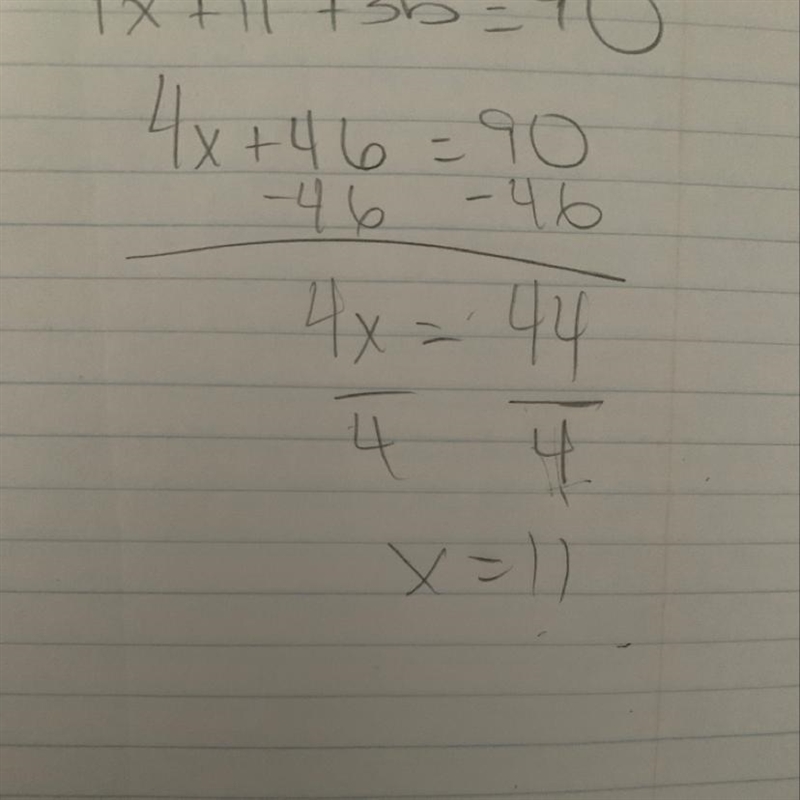 4x + 46 = 90
-46 -46
4x = 44
4 4
x = 11